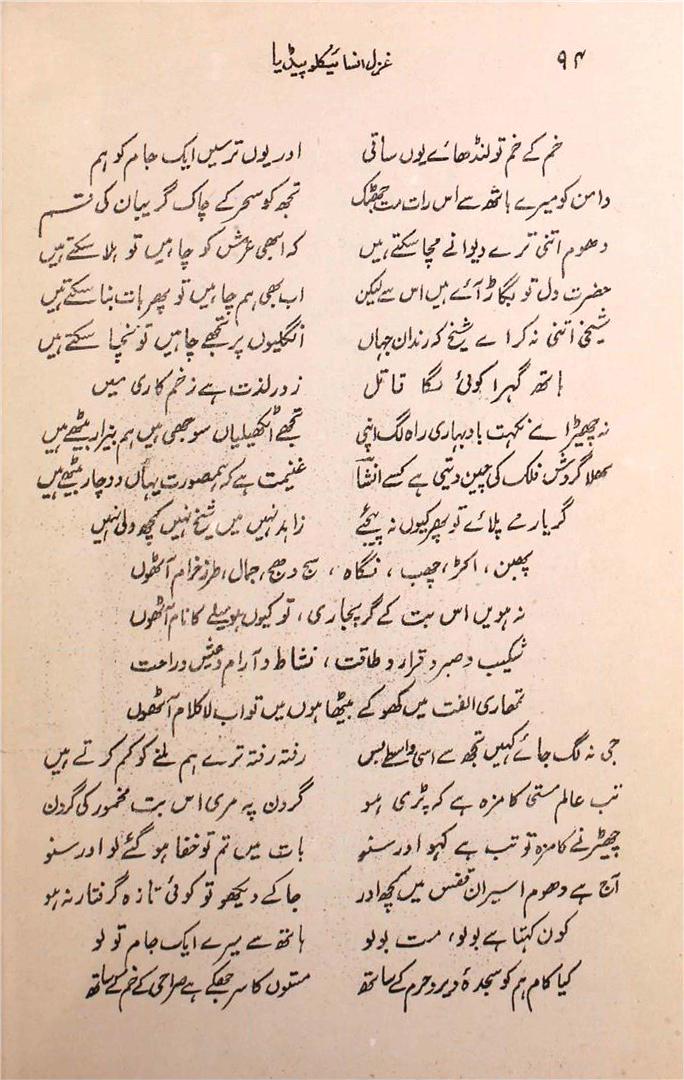 ۹۴ غزل انسائیکلو پیڈیا
خم کے خم تو لنڈھائے یوں ساقی اور یوں ترسیں ایک جام کو ہم
دامن کو میرے ہاتھ سے اس رات مت جھٹک تجھ کو سحر کے چاک گریبان کی قسم
دھوم اتنی ترے دیوانے مچا سکتے ہیں کہ ابھی عرش کو چاہیں تو ہلا سکتے ہیں
حضرت دل تو بگاڑ آئے ہیں اس سے لیکن اب بھی ہم چاہیں تو پھر بات بنا سکتے ہیں
شیخی اتنی نہ کر اے شیخ کہ رندان جہاں انگلیوں پر تجھے چاہیں تو نچا سکتے ہیں
ہاتھ گہرا کوئی لگا قاتل زور لذت ہے زخم کاری میں
نہ چھیڑ اے نکہت باد بہاری راہ لگ اپنی تجھے اٹکھیلیاں سوجھی ہیں ہم بیزار بیٹھے ہیں
بھلا گردش فلک کی چین دیتی ہے کسے انشاؔ غنیمت ہے کہ ہمصورت یہاں دوچار بیٹھے ہیں
گر یار مے پلائے تو پھر کیوں نہ پیجئے زاہد نہیں میں شیخ نہیں کچھ ولی نہیں
پھبن، اکڑ، چھب، نگاہ، سج دھج، جمال، طرز خرام آٹھوں
نہ ہویں اس بت کے گر پجاری، تو کیوں ہو میلے کا نام آٹھوں
شکیب و صبر و قرار و طاقت، نشاط و آرام و عیش و راحت
تمھاری الفت میں کھو کے بیٹھا ہوں میں تو اب لاکلام آٹھوں
جی نہ لگ جائے کہیں تجھ سے اسی واسطے بس رفتہ رفتہ ترے ہم ملنے کو کم کرتے ہیں
تب عالم مستی کا مزہ ہے کہ پڑی ہو گردن پہ مری اس بت مخمور کی گردن
چھیڑنے کا مزہ تو تب ہے کہو اور سنو بات میں تم تو خفا ہو گئے لو اور سنو
آج ہے دھوم اسیران قفس میں کچھ اور جا کے دیکھو تو کوئی تازہ گرفتار نہ ہو
کون کہتا ہے بولو، مت بولو ہاتھ سے میرے ایک جام تو لو
کیا کام ہم کو سجدۂ دیر و حرم کے ساتھ مستوں کا سر جھکے ہے صراحی کے خم کے ساتھ